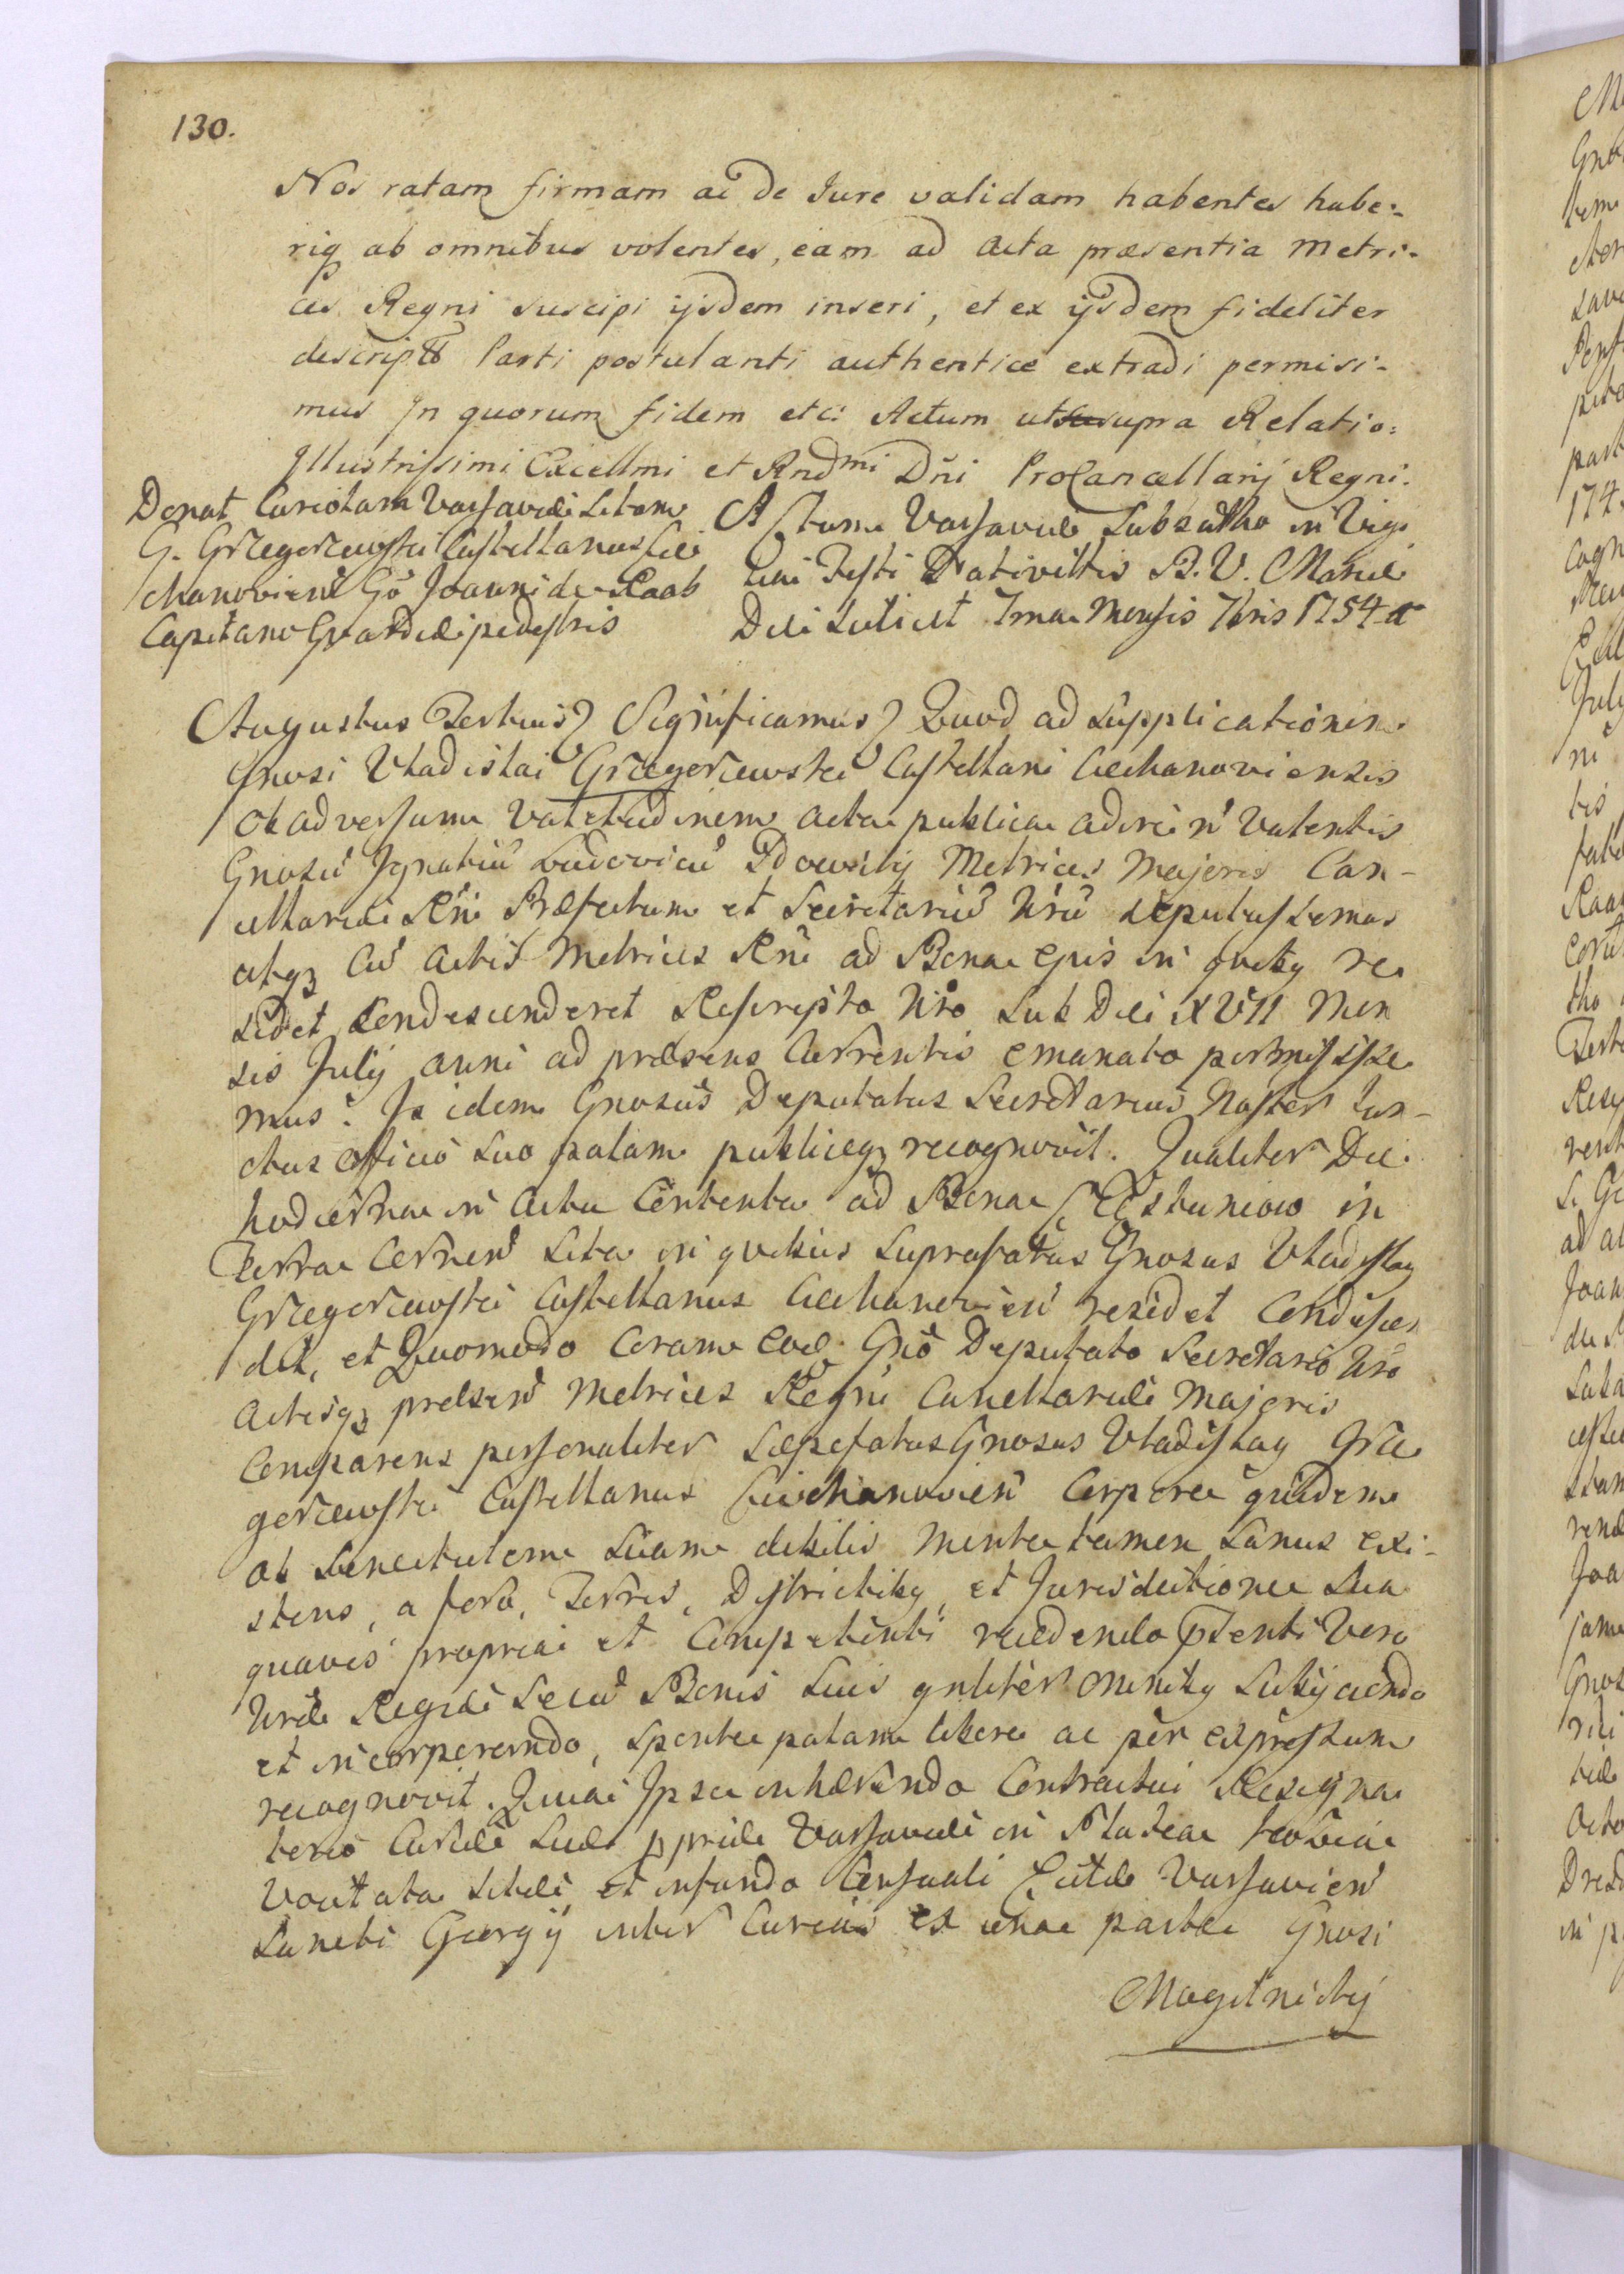 130.
Nos ratam firmam ac de Jure validam habentes habe:
riq ab omnibus volentes, eam ad Acta præsentia Metri-
ces Regni suscipi ijsdem inseri, et ex ijsdem fideliter
descriptã Parti postulanti authentice extradi permisi-
mus Jn quorum fidem etc: Actum ut supra Relatio:
Jllustrissimi Excellmi et Rndmi Dñi ProCancellarij Regni.
Donat Curiolam Varsaviæ Sitam
G. Grzegorzewski Castellanus Cie
chanovien̄ Gõ Joanni de Raab
Capitano Gvardiæ pedestris
Actum Varsaviæ Sabbatho in Vigi
lia Festi Nativittis B. V. Mariæ
Die scilicet 7ma Mensis 7bris 1754 a
Augustus Tertius Significamus Quod ad supplicationem
Gnosi Vladislai Grzegorzewski Castellani Ciechanoviensis
ob adversam valetudinem acta publica adire ñ valentis
Gnosũ Jgnatiũ Ludovicũ Metrices Majoris Can-
cellariæ Rñi Præfectum et Secretariũ Nrũ deputassemus
atqz cũ Actis Metrices Rñi ad Bona Eius in quibq re
sidet condescenderet Rescripto Nro sub Die XVII Men
sis Julij anni ad præsens currentis emanato permisisse
mus. Js idem Gnosus Deputatus Secretarius Noster fun-
ctus officio suo palam publiceqz recognovit. Qualiter Die
hodierna in Actu contenta ad Bona in
Terra Cernen̄ sita in quibus Suprafatus Gnosus Vladislaq
Grzegorzewski Castellanus Ciechanovien̄ residet condescen
dit, et Quomodo Coram eod. Gnõ Deputato Secretario Nro
Actisqz præsen̄ Metrices Regni Cancellariæ Majoris
Comparens personaliter Sæpefatus Gnosus Vladislaq Grze
gorzewski Castellanus Ciechanovien̄ Corpore quidem
ob Senectutem suam debilis Mente tamen sanus exi-
stens, a foro, Terris, Districtibq, et Jurisdictione sua
quavis propria et Competenti recedendo pſenti vero
Nræ Regiæ Secũ Bonis suis gnliter omnibq subijciendo
et incorporando, sponte palam libere ac per expressum
recognovit. Quia Jpse inhærendo Contractui Resigna
torio Curiæ suæ ppriæ Varsaviæ in Platea
vocitata sitæ et in fundo Censuali Varsavien̄
Sancti Georgij inter Curias ex una parte Gnosi
Mogilnickij